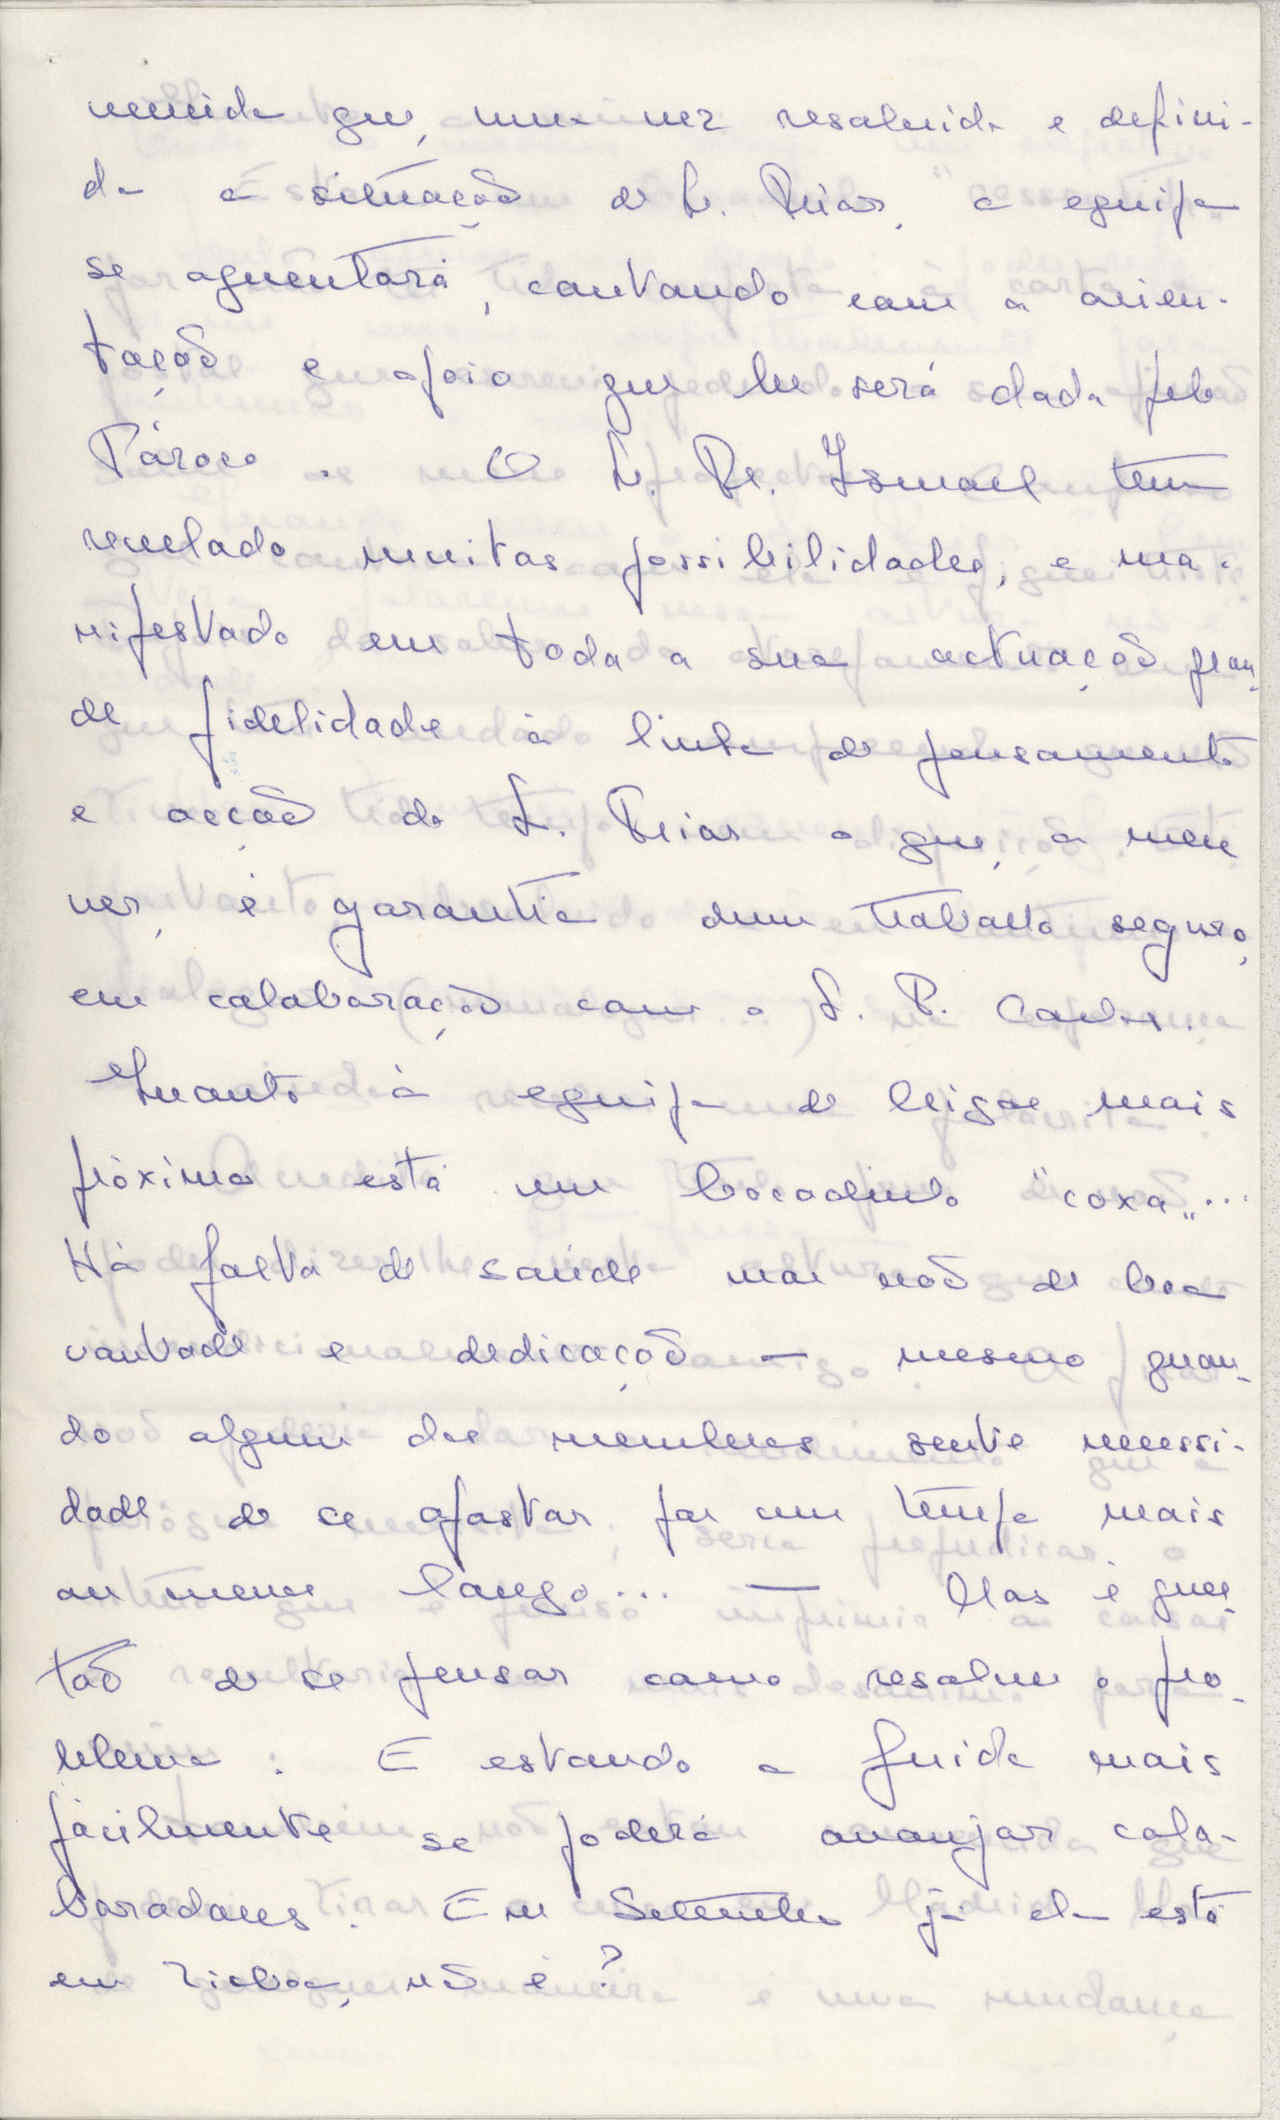 vencida que, uma vez resolvida e defini-
da a situação de S. Prior, a equipa
se aguentará, contando com a orien-
tação e apoio que lhe será dada pelo
Pároco. O S. Pe. Ismael tem
revelado muitas possibilidades, e ma-
nifestado em toda a sua actuação gran-
de fidelidade à linha de pensamento
e acção do S. Prior o que, a meu
ver, é garantia dum trabalho seguro,
em colaboração com o S. P. Carlos.
Quanto à equipa de leigos mais
próxima está um bocadinho "coxa"...
Há falta de saúde mas não de boa
vontade e dedicação — mesmo quan-
do algum dos membros sente necessi-
dade de se afastar por um tempo mais
ou menos longo... — Mas é ques-
tão de se pensar como resolver o pro-
blema: E estando a Guida mais
fàcilmente se poderá arranjar cola-
boradores. Em Setembro já ela está
em Lisboa, não é?